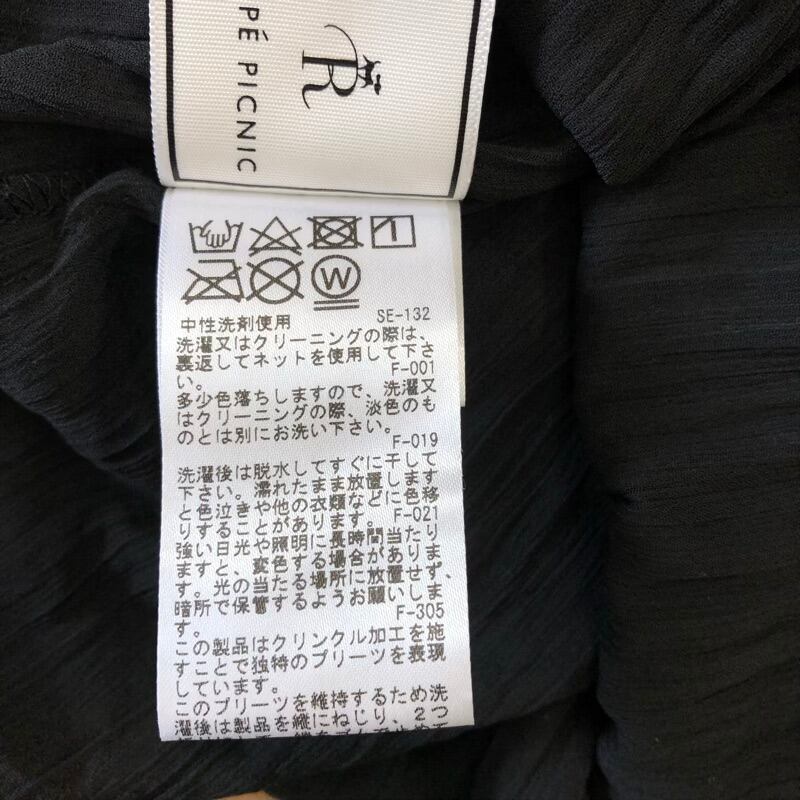 R
PÉ PICNIC
W
中性洗剤使用 SE-132
洗濯又はクリーニングの際は、
裏返してネットを使用して下さ
い。 F-001
多少色落ちしますので、洗濯又
はクリーニングの際、淡色のも
のとは別にお洗い下さい。
F-019
洗濯後は脱水してすぐに干して
下さい。濡れたまま放置します
と色泣きや他の衣類などに色移
りすることがあります。 F-021
強い日光や照明に長時間当たり
ますと、変色する場合がありま
す。光の当たる場所に放置せず、
暗所で保管するようお願いしま
す。 F-305
この製品はクリンクル加工を施
すことで独特のプリーツを表現
しています。
このプリーツを維持するため洗
濯後は製品を縦にねじり、２つ